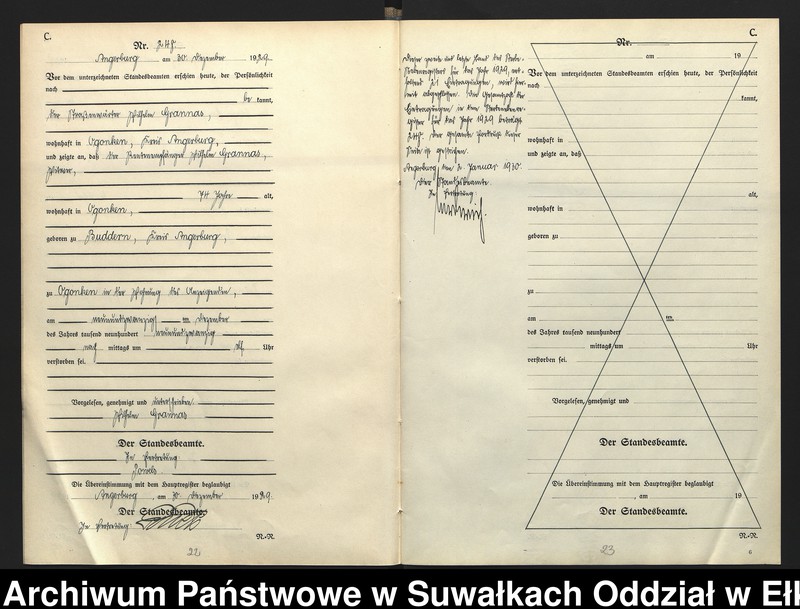 C.
Nr. 248.
Angerburg am 30. Dezember 1929.
Vor dem unterzeichneten Standesbeamten erschien heute, der Persönlichkeit
nach
be kannt,
der Straßenwärter Wilhelm Grannas,
wohnhaft in Ogonken, Kreis Angerburg,
und zeigte an, daß der Rentenempfänger Wilhelm Grannas,
Witwer,
74 Jahre alt,
wohnhaft in Ogonken,
geboren zu Buddern, Kreis Angerburg,
zu Ogonken in der Wohnung des Anzeigenden,
am neunundzwanzigsten Dezember
des Jahres tausend neunhundert neunundzwanzig
nach mittags um elf Uhr
verstorben sei.
Vorgelesen, genehmigt und unterschrieben
Wilhelm Grannas
Der Standesbeamte.
In Vertretung
Die Übereinstimmung mit dem Hauptregister beglaubigt
Angerburg, am 30. Dezember 1929.
Der Standesbeamte.
In Vertretung
N.-N.
22
Dieser zweite und letzte Band des Sterbe-
Nebenregisters für das Jahr 1929, ent-
haltend 21 Eintragungen, wird hier-
mit abgeschlossen. Die Gesamtzahl der
Eintragungen in dem Sterbenebenre-
gister für das Jahr 1929 beträgt
248. Der gesamte Vordruck dieser
Seite ist gestrichen.
Angerburg, den 2. Januar 1930.
Der Standesbeamte.
In Vertretung
C.
Nr.
am 19
Vor dem unterzeichneten Standesbeamten erschien heute, der Persönlichkeit
nach
kannt,
wohnhaft in
und zeigte an, daß
alt,
wohnhaft in
geboren zu
zu
am ten
des Jahres tausend neunhundert
mittags um Uhr
verstorben sei.
Vorgelesen, genehmigt und
Der Standesbeamte.
Die Übereinstimmung mit dem Hauptregister beglaubigt
, am 19
Der Standesbeamte.
N.-N.
23
6
Archiwum Państwowe w Suwałkach Oddział w Eł